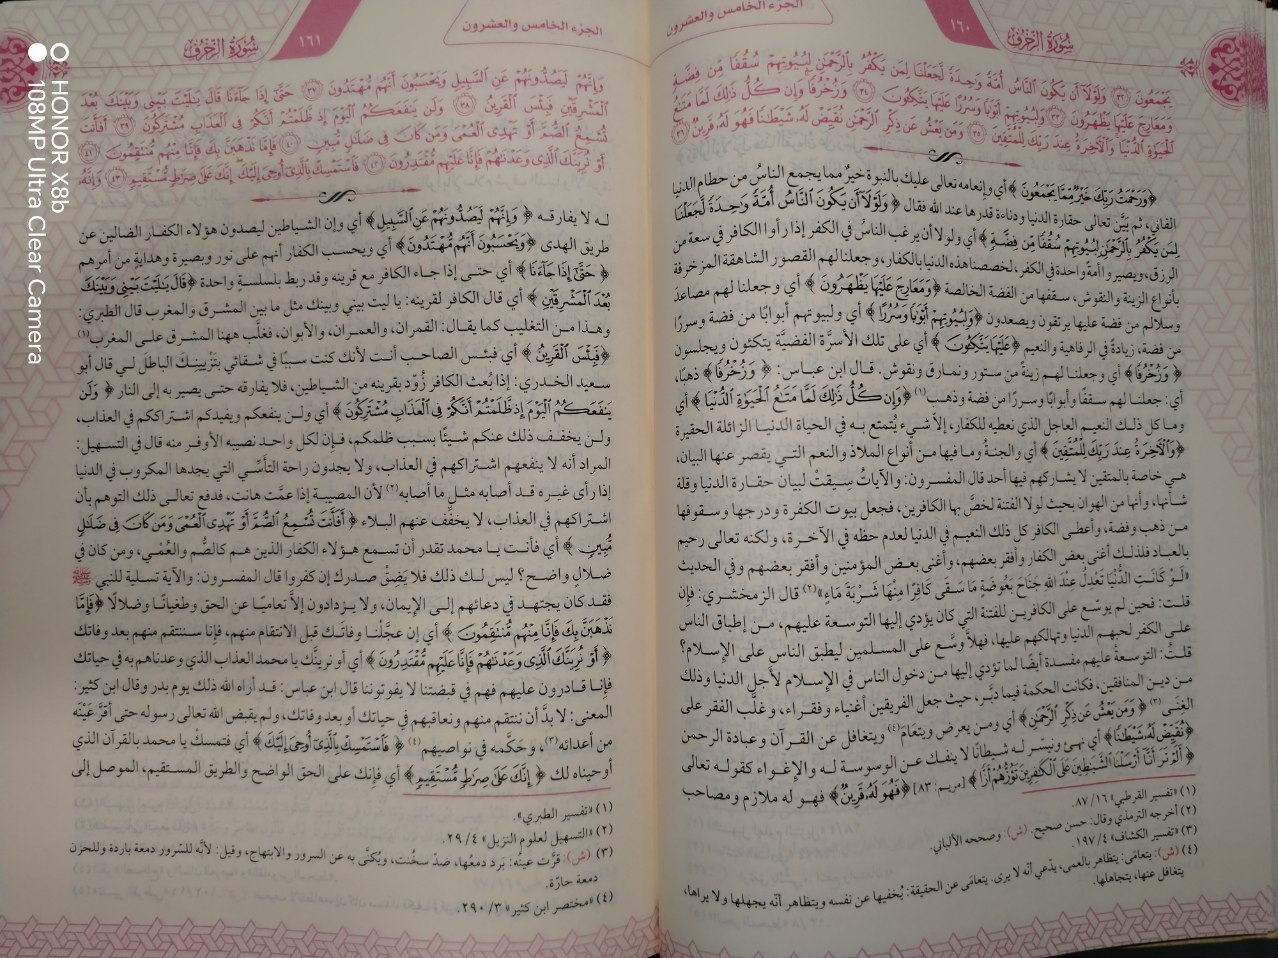 سُورَةُ الزُّخْرُفِ
١٦٠
الجزء الخامس والعشرون
يَجْمَعُونَ ﴿٣٢﴾ وَلَوْلَا أَن يَكُونَ النَّاسُ أُمَّةً وَاحِدَةً لَّجَعَلْنَا لِمَن يَكْفُرُ بِالرَّحْمَٰنِ لِبُيُوتِهِمْ سُقُفًا مِّن فِضَّةٍ
وَمَعَارِجَ عَلَيْهَا يَظْهَرُونَ ﴿٣٣﴾ وَلِبُيُوتِهِمْ أَبْوَابًا وَسُرُرًا عَلَيْهَا يَتَّكِئُونَ ﴿٣٤﴾ وَزُخْرُفًا وَإِن كُلُّ ذَٰلِكَ لَمَّا مَتَاعُ
الْحَيَاةِ الدُّنْيَا وَالْآخِرَةُ عِندَ رَبِّكَ لِلْمُتَّقِينَ ﴿٣٥﴾ وَمَن يَعْشُ عَن ذِكْرِ الرَّحْمَٰنِ نُقَيِّضْ لَهُ شَيْطَانًا فَهُوَ لَهُ قَرِينٌ ﴿٣٦﴾
﴿وَرَحْمَتُ رَبِّكَ خَيْرٌ مِّمَّا يَجْمَعُونَ﴾ أي وإنعامه تعالى عليك بالنبوة خيرٌ مما يجمع الناسُ من حطام الدنيا
الفاني، ثم بيَّن تعالى حقارة الدنيا ودناءة قدرها عند الله فقال ﴿وَلَوْلَا أَن يَكُونَ النَّاسُ أُمَّةً وَاحِدَةً لَّجَعَلْنَا
لِمَن يَكْفُرُ بِالرَّحْمَٰنِ لِبُيُوتِهِمْ سُقُفًا مِّن فِضَّةٍ﴾ أي ولولا أن يرغب الناسُ في الكفر إذا رأوا الكافر في سعة من
الرزق، ويصيروا أمةً واحدة في الكفر، لخصصنا هذه الدنيا بالكفار، وجعلنا لهم القصور الشاهقة المزخرفة
بأنواع الزينة والنقوش، سقفها من الفضة الخالصة ﴿وَمَعَارِجَ عَلَيْهَا يَظْهَرُونَ﴾ أي وجعلنا لهم مصاعدَ
وسلالم من فضة عليها يرتقون ويصعدون ﴿وَلِبُيُوتِهِمْ أَبْوَابًا وَسُرُرًا﴾ أي ولبيوتهم أبوابًا من فضة وسررًا
من فضة، زيادةً في الرفاهية والنعيم ﴿عَلَيْهَا يَتَّكِئُونَ﴾ أي على تلك الأسرَّة الفضيَّة يتكئون ويجلسون
﴿وَزُخْرُفًا﴾ أي وجعلنا لهم زينةً من ستور ونمارق ونقوش. قال ابن عباس: ﴿وَزُخْرُفًا﴾ ذهبًا،
أي: جعلنا لهم سقفًا وأبوابًا وسررًا من فضة وذهب(١) ﴿وَإِن كُلُّ ذَٰلِكَ لَمَّا مَتَاعُ الْحَيَاةِ الدُّنْيَا﴾ أي
وما كل ذلك النعيم العاجل الذي نعطيه للكفار، إلا شيء يُتمتع به في الحياة الدنيا الزائلة الحقيرة
﴿وَالْآخِرَةُ عِندَ رَبِّكَ لِلْمُتَّقِينَ﴾ أي والجنةُ وما فيها من أنواع الملاذ والنعم التي يقصر عنها البيان،
هي خاصة بالمتقين لا يشاركهم فيها أحد قال المفسرون: والآياتُ سِيقتْ لبيان حقارة الدنيا وقلة
شأنها، وأنها من الهوان بحيث لولا الفتنة لخصَّ بها الكافرين، فجعل بيوت الكفرة ودرجها وسقوفها
من ذهب وفضة، وأعطى الكافر كل ذلك النعيم في الدنيا لعدم حظه في الآخرة، ولكنه تعالى رحيم
بالعباد فلذلك أغنى بعض الكفار وأفقر بعضهم، وأغنى بعض المؤمنين وأفقر بعضهم وفي الحديث
«لَوْ كَانَتِ الدُّنْيَا تَعْدِلُ عِنْدَ اللهِ جَنَاحَ بَعُوضَةٍ مَا سَقَى كَافِرًا مِنْهَا شَرْبَةَ مَاءٍ»(٢) قال الزمخشري: فإِن
قلت: فحين لم يوسّع على الكافرين للفتنة التي كان يؤدي إليها التوسعة عليهم، من إطباق الناس
على الكفر لحبهم الدنيا وتهالكهم عليها، فهلاَّ وسَّع على المسلمين ليطبق الناس على الإسلام؟
قلتُ: التوسعةُ عليهم مفسدة أيضًا لما تؤدي إليها من دخول الناس في الإسلام لأجل الدنيا وذلك
من دين المنافقين، فكانت الحكمة فيما دبَّر، حيث جعل الفريقين أغنياء وفقراء، وغلَّب الفقر على
الغنى(٣) ﴿وَمَن يَعْشُ عَن ذِكْرِ الرَّحْمَٰنِ﴾ أي ومن يعرض ويتعامَ(٤) ويتغافل عن القرآن وعبادة الرحمن
﴿نُقَيِّضْ لَهُ شَيْطَانًا﴾ أي نهيئ ونيسّر له شيطانًا لا ينفك عن الوسوسة له والإغواء كقوله تعالى
﴿أَلَمْ تَرَ أَنَّا أَرْسَلْنَا الشَّيَاطِينَ عَلَى الْكَافِرِينَ تَؤُزُّهُمْ أَزًّا﴾ [مريم: ٨٣] ﴿فَهُوَ لَهُ قَرِينٌ﴾ فهو له ملازم ومصاحب
(١) «تفسير القرطبي» ١٦/ ٨٧.
(٢) أخرجه الترمذي وقال: حسن صحيح. (ش): وصححه الألباني.
(٣) «تفسير الكشاف» ٤/ ١٩٧.
(٤) (ش): يتعامَى: يتظاهر بالعمى، يدّعي أنّه لا يرى. يتعامَى عن الحقيقة: يُخفيها عن نفسه ويتظاهر أنّه يجهلها ولا يراها،
يتغافل عنها، يتجاهلها.
الجزء الخامس والعشرون
١٦١
سُورَةُ الزُّخْرُفِ
وَإِنَّهُمْ لَيَصُدُّونَهُمْ عَنِ السَّبِيلِ وَيَحْسَبُونَ أَنَّهُم مُّهْتَدُونَ ﴿٣٧﴾ حَتَّىٰ إِذَا جَاءَنَا قَالَ يَا لَيْتَ بَيْنِي وَبَيْنَكَ بُعْدَ
الْمَشْرِقَيْنِ فَبِئْسَ الْقَرِينُ ﴿٣٨﴾ وَلَن يَنفَعَكُمُ الْيَوْمَ إِذ ظَّلَمْتُمْ أَنَّكُمْ فِي الْعَذَابِ مُشْتَرِكُونَ ﴿٣٩﴾ أَفَأَنتَ
تُسْمِعُ الصُّمَّ أَوْ تَهْدِي الْعُمْيَ وَمَن كَانَ فِي ضَلَالٍ مُّبِينٍ ﴿٤٠﴾ فَإِمَّا نَذْهَبَنَّ بِكَ فَإِنَّا مِنْهُم مُّنتَقِمُونَ ﴿٤١﴾
أَوْ نُرِيَنَّكَ الَّذِي وَعَدْنَاهُمْ فَإِنَّا عَلَيْهِم مُّقْتَدِرُونَ ﴿٤٢﴾ فَاسْتَمْسِكْ بِالَّذِي أُوحِيَ إِلَيْكَ إِنَّكَ عَلَىٰ صِرَاطٍ مُّسْتَقِيمٍ ﴿٤٣﴾ وَإِنَّهُ
له لا يفارقه ﴿وَإِنَّهُمْ لَيَصُدُّونَهُمْ عَنِ السَّبِيلِ﴾ أي وإن الشياطين ليصدون هؤلاء الكفار الضالين عن
طريق الهدى ﴿وَيَحْسَبُونَ أَنَّهُم مُّهْتَدُونَ﴾ أي ويحسب الكفار أنهم على نور وبصيرة وهدايةٍ من أمرهم
﴿حَتَّىٰ إِذَا جَاءَنَا﴾ أي حتى إذا جاء الكافر مع قرينه وقد ربط بلسلسةٍ واحدة ﴿قَالَ يَا لَيْتَ بَيْنِي وَبَيْنَكَ
بُعْدَ الْمَشْرِقَيْنِ﴾ أي قال الكافر لقرينه: يا ليت بيني وبينك مثل ما بين المشرق والمغرب قال الطبري:
وهذا من التغليب كما يقال: القمران، والعمران، والأبوان، فغلَّب ههنا المشرق على المغرب(١)
﴿فَبِئْسَ الْقَرِينُ﴾ أي فبئس الصاحب أنت لأنك كنت سببًا في شقائي بتَزْيينِكَ الباطلَ لي قال أبو
سعيد الخدري: إذا بُعث الكافر زُوِّد بقرينه من الشياطين، فلا يفارقه حتى يصير به إلى النار ﴿وَلَن
يَنفَعَكُمُ الْيَوْمَ إِذ ظَّلَمْتُمْ أَنَّكُمْ فِي الْعَذَابِ مُشْتَرِكُونَ﴾ أي ولن ينفعكم ويفيدكم اشتراككم في العذاب،
ولن يخفف ذلك عنكم شيئًا بسبب ظلمكم، فإن لكل واحد نصيبه الأوفر منه قال في التسهيل:
المراد أنه لا ينفعهم اشتراكهم في العذاب، ولا يجدون راحة التأسّي التي يجدها المكروب في الدنيا
إذا رأى غيره قد أصابه مثل ما أصابه(٢) لأن المصيبة إذا عمَّت هانت، فدفع تعالى ذلك التوهم بأن
اشتراكهم في العذاب، لا يخفف عنهم البلاء ﴿أَفَأَنتَ تُسْمِعُ الصُّمَّ أَوْ تَهْدِي الْعُمْيَ وَمَن كَانَ فِي ضَلَالٍ
مُّبِينٍ﴾ أي فأنت يا محمد تقدر أن تسمع هؤلاء الكفار الذين هم كالصُّم والعُمْي، ومن كان في
ضلال واضح؟ ليس لك ذلك فلا يَضِقْ صدرك إن كفروا قال المفسرون: والآية تسلية للنبي ﷺ
فقد كان يجتهد في دعائهم إلى الإيمان، ولا يزدادون إلاَّ تعاميًا عن الحق وطغيانًا وضلالًا ﴿فَإِمَّا
نَذْهَبَنَّ بِكَ فَإِنَّا مِنْهُم مُّنتَقِمُونَ﴾ أي إن عجَّلْنا وفاتَك قبل الانتقام منهم، فإنا سننتقم منهم بعد وفاتك
﴿أَوْ نُرِيَنَّكَ الَّذِي وَعَدْنَاهُمْ فَإِنَّا عَلَيْهِم مُّقْتَدِرُونَ﴾ أي أو نرينَّك يا محمد العذاب الذي وعدناهم به في حياتك
فإنا قادرون عليهم فهم في قبضتنا لا يفوتوننا قال ابن عباس: قد أراه الله ذلك يوم بدر وقال ابن كثير:
المعنى: لا بدَّ أن ننتقم منهم ونعاقبهم في حياتك أو بعد وفاتك، ولم يقبض الله تعالى رسوله حتى أقرَّ عَيْنَه
من أعدائه(٣)، وحَكَّمه في نواصيهم(٤) ﴿فَاسْتَمْسِكْ بِالَّذِي أُوحِيَ إِلَيْكَ﴾ أي فتمسكْ يا محمد بالقرآن الذي
أوحيناه لك ﴿إِنَّكَ عَلَىٰ صِرَاطٍ مُّسْتَقِيمٍ﴾ أي فإنك على الحق الواضح والطريق المستقيم، الموصل إلى
(١) «تفسير الطبري».
(٢) «التسهيل لعلوم التنزيل» ٤/ ٢٩.
(٣) (ش): قَرَّت عينُه: بَرَد دمعُها، ضدّ سخُنت، ويُكنَّى به عن السرور والابتهاج، وقيل: لأنّه للسّرور دمعة باردة وللحزن
دمعة حارّة.
(٤) «مختصر ابن كثير» ٣/ ٢٩٠.
HONOR X8b
108MP Ultra Clear Camera